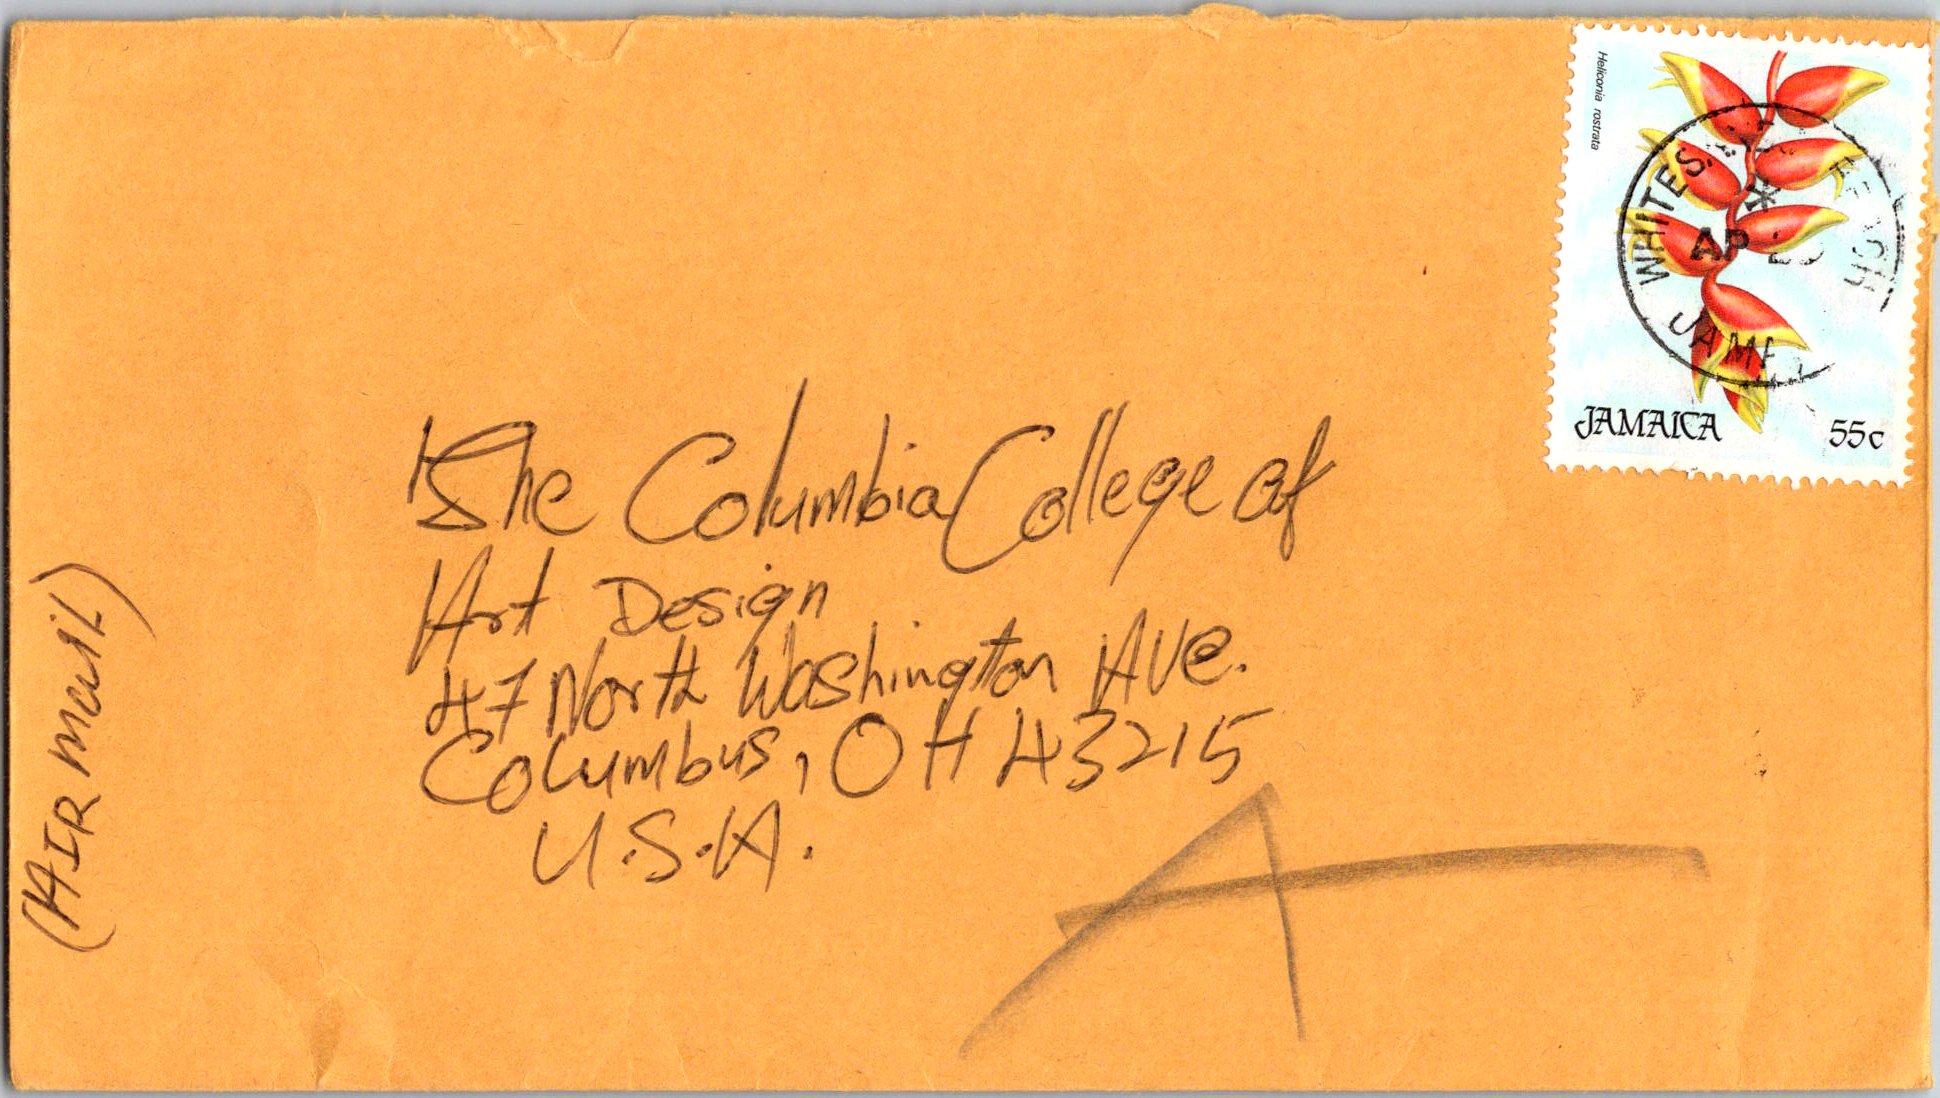 Heliconia rostrata
WHITES
AP
JAMAICA 55c
The Columbia College of
Art Design
47 North Washington Ave.
Columbus, OH 43215
U.S.A.
(AIR Mail)
A